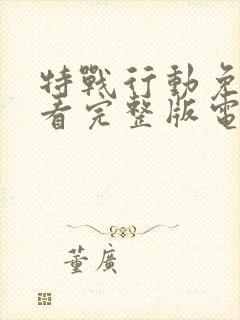 特戰行動免
看完整版電
董廣